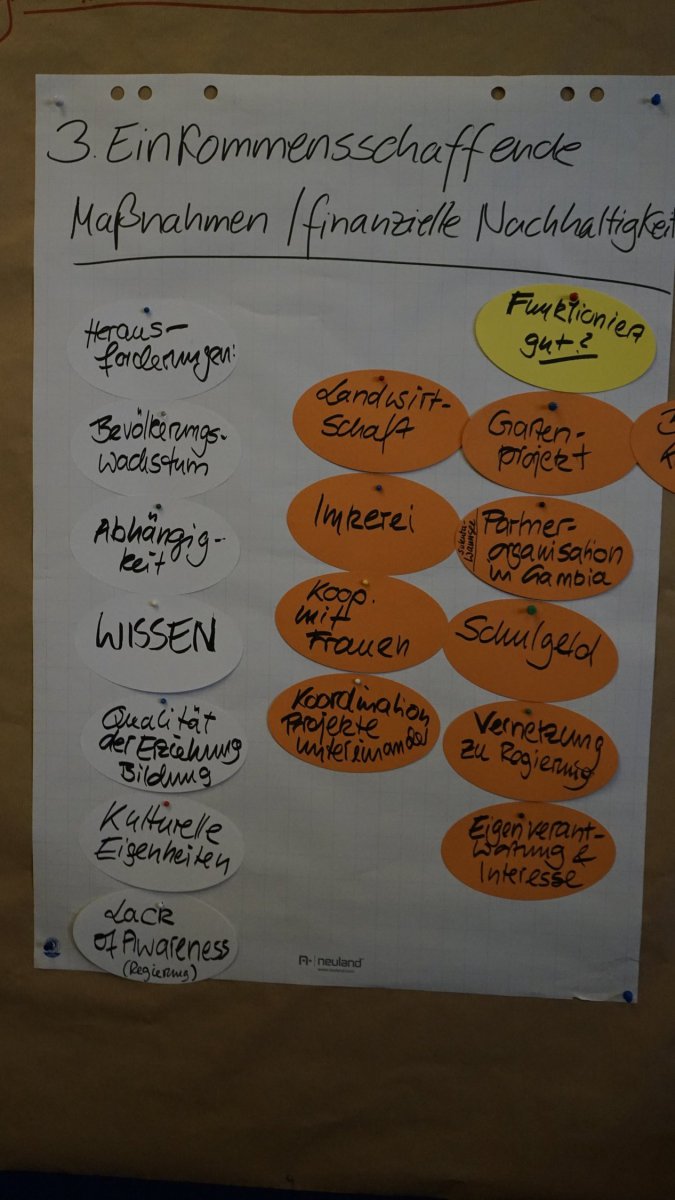 3. Einkommensschaffende
Maßnahmen / finanzielle Nachhaltigkeit
Heraus-
forderungen:
Bevölkerungs-
wachstum
Abhängig-
keit
WISSEN
Qualität
der Erziehung
Bildung
Kulturelle
Eigenheiten
Lack
of Awareness
(Regierung)
Funktioniert
gut?
Landwirt-
schaft
Imkerei
Koop.
mit
Frauen
Koordination
Projekte
untereinander
Garten-
projekt
Partner-
organisation
in Gambia
Schulgeld
Vernetzung
zu Regierung
Eigenverant-
wortung &
Interesse
neuland